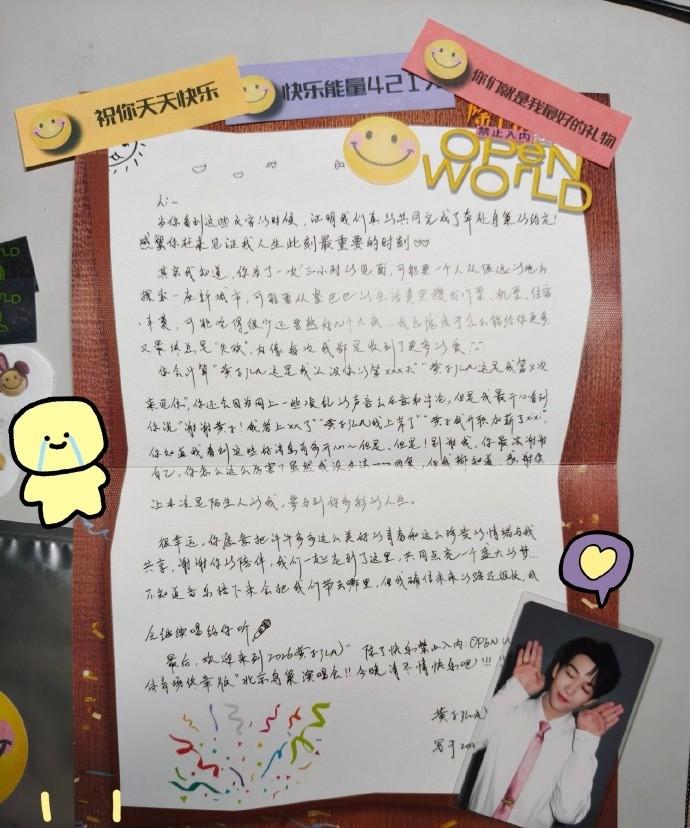 祝你天天快乐
快乐能量421
你们就是我最好的礼物
除了快乐
禁止入内
OPeN
WOrLD
人~
当你看到这些文字的时候，证明我们真的共同完成了奔赴鸟巢的约定！
感谢你赶来见证我人生此刻最重要的时刻♡♡
其实我知道，你为了一次三小时的见面，可能要一个人从很远的地方
探索一座新城市，可能要从紧巴巴的生活费里攒出门票、机票、住宿
又最终总是“失败”，好像每次我都是收到了更多的爱
你会计算“黄子弘凡这是我认识你的第xxx天”“黄子弘凡这是我第x次
来见你”，你还会因为网上一些凌乱的声音去在意和争论，但是我最开心看到
你说“谢谢黄子！我考上xx了”“黄子弘凡我上岸了”“黄子我升职加薪了xixi”
你知道我看到这些好消息有多开心~但是、但是！别谢我，你最该谢谢
自己，你怎么这么厉害？虽然我没办法一一回复，但我都知道，感谢你
让本该是陌生人的我，参与到你多彩的人生。
很幸运，你愿意把许许多多这么美好的青春和这么珍贵的情绪与我
共享，谢谢你的陪伴，我们一起走到了这里，共同点亮一个盛大的梦…
不知道音乐接下来会把我们带去哪里，但我确信未来的路还很长，我
会继续唱给你听
最后，欢迎来到2026黄子弘凡“除了快乐禁止入内：OPEN W
体育场终章版”北京鸟巢演唱会!!今晚请尽情快乐吧!!!
黄子弘凡
写于202